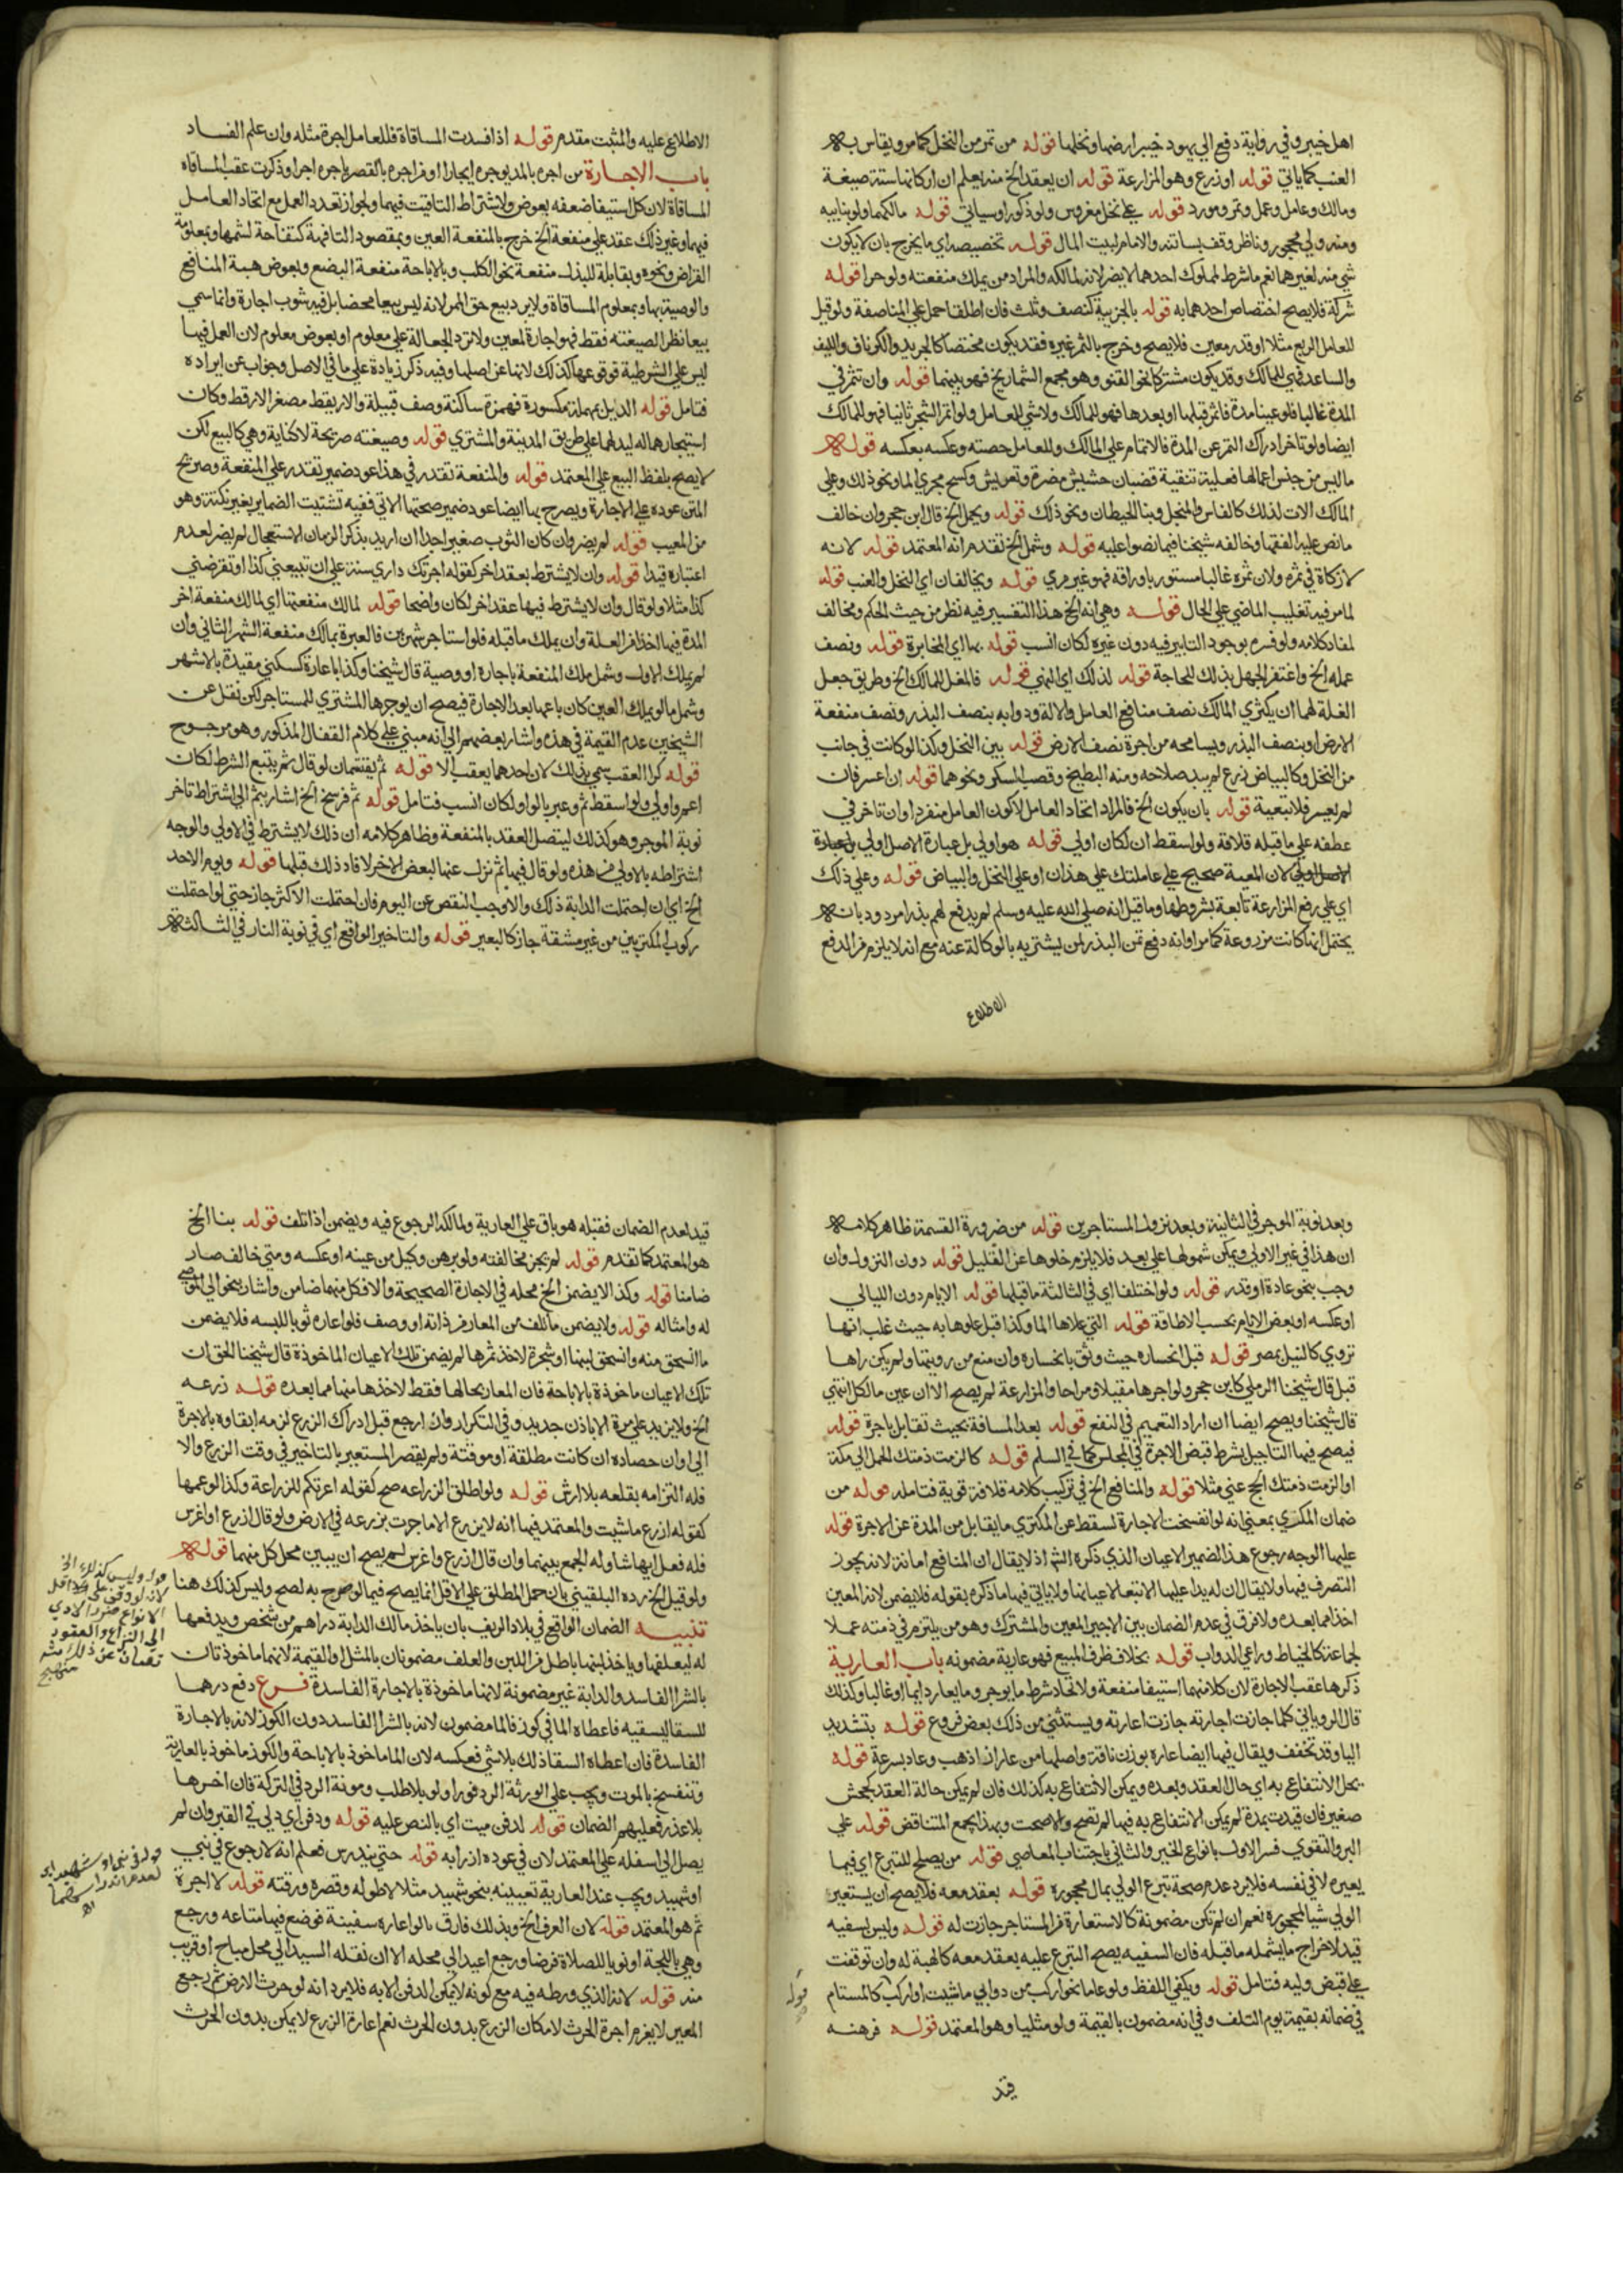 اهل خيبر وفي رواية دفع الي يهود خيبر ارضها ونخلها قوله من ثمر من النخل كما مر ويقاس به
العنب كما ياتي قوله او زرع وهو المزارعة قوله ان يعقد الخ منه يعلم ان اركانها ستة صيغة
ومالك وعامل وعمل وثمر ومورد قوله علي نخل مغروس ولو ذكورا وسياتي قوله مالكهما ولو بنايبه
ومنه ولي محجور وناظر وقف بساتنه والامام لبيت المال قوله تخصيصه اي ما يخرج بان لا يكون
شي منه لغيرهما نعم ما شرط لمملوك احدهما لا يضر لانه لمالكه والمراد من يملك منفعته ولو حرا قوله
شركة فلا يصح اختصاص احدهما به قوله بالجزيية كنصف وثلث فان اطلقا حمل علي المناصفة ولو قيل
للعامل الربع مثلا او قدر معين فلا يصح وخرج بالثمر غيره فقد يكون مختصا كالجريد والكرناف والليف
والساعد فهي للمالك وقد يكون مشتركا نحو القنو وهو مجمع الشماريخ فهو بينهما قوله وان تثمر في
المدة غالبا فلو عينا مدة فاثمر قبلها او بعدها فهو للمالك ولا شي للعامل ولو اثمر الشجر ثانيا فهو للمالك
ايضا ولو تاخر ادراك الثمر عن المدة فالاتمام علي المالك وللعامل حصته وعكسه بعكسه قوله
ما ليس من جنس اعمالها فعليه تنقية قضبان حشيش مضرة وتعريش وكسح مجري الما ونحو ذلك وعلي
المالك الات لذلك كالفاس والمنجل وبنا الحيطان ونحو ذلك قوله ويحمل الخ قال ابن حجر وان خالف
ما نص عليه الفقها وخالفه شيخنا فيما نصوا عليه قوله وشمل الخ تقدم انه المعتمد قوله لانه
لا زكاة في ثمره ولان ثمره غالبا مستور باوراقه فهو غير مري قوله ويخالفان اي النخل والعنب قوله
لما مر فيه تغليب الماضي علي الحال قوله وهي انه الخ هذا التفسير فيه نظر من حيث الحكم ومخالف
لمفاد كلامه ولو فسره بوجود التابير فيه دون غيره لكان انسب قوله بها اي المخابرة قوله ونصف
عمله الخ واغتفر الجهل بذلك للحاجة قوله لذلك اي النهي قوله فالمغل للمالك الخ وطريق جعل
الغلة لهما ان يكتري المالك نصف منافع العامل والاته ودوابه بنصف البذر ونصف منفعة
الارض او بنصف البذر ويسامحه من اجرة نصف الارض قوله بين النخل وكذا لو كانت في جانب
من النخل وكالبياض زرع لم يبد صلاحه ومنه البطيخ وقصب السكر ونحوهما قوله ان عسر فان
لم يعسر فلا تبعية قوله بان يكون الخ فالمراد اتحاد العامل لا كون العامل منفردا وان تاخر في
عطفه علي ما قبله قلاقة ولو اسقط ان لكان اولي قوله هو اولي بل عبارة الاصل اولي
لان المعية صحيح علي عاملتك علي هذان او علي النخل والبياض قوله وعلي ذلك
اي علي رفع المزارعة تابعة بشروطها وما قيل انه صلي الله عليه وسلم لم يدفع لهم بذرا مردود بانه
يحتمل انها كانت مزروعة كما مر او انه دفع ثمن البذر لمن يشتريه بالوكالة عنه مع انه لا يلزم من الدفع
الاطلاع
الاطلاع عليه والمثبت مقدم قوله اذا فسدت المساقاة فللعامل اجرة مثله وان علم الفساد
باب الاجارة من اجره بالمد يوجره ايجارا او من اجره بالقصر ياجره اجرا وذكرت عقب المساقاة
المساقاة لان كل استيفا ضعفه بعوض ولاشتراط التاقيت فيهما ولجواز تعدد العمل مع اتحاد العامل
فيهما وغير ذلك عقد علي منفعة الخ خرج بالمنفعة العين وبمقصود التافهة كتفاحة لشمها وبمعلومة
القراض ونحوه وبقابلة للبذل منفعة نحو الكلب وبالاباحة منفعة البضع وبعوض هبة المنافع
والوصية بها وبمعلوم المساقاة ولا يرد بيع حق الممر لانه ليس بيعا محضا بل فيه شوب اجارة وانما سمي
بيعا نظرا لصيغته فقط فهو اجارة لمعين ولا ترد الجعالة علي معلوم او بعوض معلوم لان العمل فيها
ليس علي الشرطية فوقوعها كذلك لا نها عن اصلها وفيه ذكر زيادة علي ما في الاصل وجواب عن ايراده
فتامل قوله الديل بمهملة مكسورة فهمزة ساكنة وصف قبيلة والاريقط مصغر الارقط وكان
استيجارهما له ليدلهما علي طريق المدينة والمشتري قوله وصيغته صريحة لا كناية وهي كالبيع لكن
لا يصح بلفظ البيع علي المعتمد قوله والمنفعة تقدر في هذا عود ضمير تقدر علي المنفعة وصريح
المتن عوده علي الاجارة ويصرح بها ايضا عود ضمير صحتها الاتي ففيه تشتيت الضماير بغير نكتة وهو
من المعيب قوله لم يضر وان كان الثوب صغيرا جدا ان اريد بذكر الزمان الاستعجال لم يضر لعدم
اعتباره قيدا قوله وان لا يشترط بعقد اخر كقوله اجرتك داري سنة علي ان تبيعني كذا او تقرضني
كذا مثلا ولو قال وان لا يشترط فيها عقد اخر لكان واضحا قوله لمالك منفعتها اي لمالك منفعة اخر
المدة فيما الخ ذا فر العلة وان يملك ما قبله فلو استاجر شهرين فالعبرة بمالك منفعة الشهر الثاني وان
لم يملك الاول وشمل ملك المنفعة باجارة او وصية قال شيخنا وكذا باعارة كسكني مقيدة بالاشهر
وشمل مالو يملك العين كان باعها بعد الاجارة فيصح ان يوجرها المشتري للمستاجر لكن نقل عن
الشيخين عدم القيمة في هذه واشار بعضهم الي انه مبني علي كلام القفال المذكور وهو مرجوح
قوله كرا العقب سمي بذلك لان احدهما يعقب الا قوله ثم يقتسمان لو قال ثم يتبع الشرط لكان
اعم واولي ولو اسقط ثم وعبر بالواو لكان انسب فتامل قوله ثم فرسخ الخ اشار بثم الي اشتراط تاخر
نوبة الموجر وهو كذلك ليتصل العقد بالمنفعة وظاهر كلامه ان ذلك لا يشترط في الاولي والوجه
اشتراطه بالاولي من هذه ولو قال فيها ثم نزل عنها البعض الاخر لافاد ذلك قبلها قوله ويوم الاحد
الخ اي ان احتملت الدابة ذلك والاوجب النقص عن اليوم فان احتملت الاكثر جاز حتي لو احتملت
ركوب المكتريين من غير مشقة جاز كالبعير قوله والتاخير الواقع اي في نوبة النار في الثالثة
وبعد نوبة الموجر في الثانية وبعد نزول المستاجرين قوله من ضرورة القسمة ظاهر كلامه
ان هذا في غير الاولي ويمكن شمولها علي بعد فلا يلزم خلوها عن القليل قوله دون النزول وان
وجب بنحو عادة او قدر قوله ولو اختلفا اي في الثالثة ما قبلها قوله الايام دون الليالي
او عكسه او بعض الايام بحسب الاطاقة قوله التي علاها الما وكذا قبل علوها به حيث غلب انها
تروي كالنيل بمصر قوله قبل انحساره حيث وثق بانحساره وان منع من رويتها ولم يكن راها
قبل قال شيخنا الرملي كابن حجر ولو اجرها مقيلا ومراحا والمزارعة لم يصح الا ان عين ما لكل انتهي
قال شيخنا ويصح ايضا ان اراد التعميم في النفع قوله بعد المسافة بحيث تقابل باجرة قوله
فيصح فيها التاجيل بشرط قبض الاجرة في المجلس كما في السلم قوله كالزمت ذمتك الحمل الي مكة
او الزمت ذمتك الحج عني مثلا قوله والمنافع الخ في تركيب كلامه قلاقة قوية فتامله قوله من
ضمان المكتري بمعني انه لو انفسخت الاجارة لسقط عن المكتري ما يقابل من المدة عن الاجرة قوله
عليها الوجه رجوع هذا الضمير الاعيان الذي ذكره الش اذ لا يقال ان المنافع امانة لانه يجوز
التصرف فيها ولا يقال ان له يدا عليها الا تبعا لاعيانها ولا ياتي فيها ما ذكره بقوله فلا يضمن لانه المعين
اخذا مما بعده ولا فرق في عدم الضمان بين الاجير المعين والمشترك وهو من يلتزم في ذمته عملا
لجماعة كالخياط وراعي الدواب قوله بخلاف ظرف المبيع فهو عارية مضمونه باب العارية
ذكرها عقب الاجارة لان كلا منهما استيفا منفعة ولاتحاد شرط ما يوجر وما يعار دايما او غالبا ولذلك
قال الروياني كلما جازت اجارته جازت اعارته ويستثني من ذلك بعض فروع قوله بتشديد
اليا وقد تخفف ويقال فيها ايضا عاره بوزن ناقة واصلها من عار اذا ذهب وعاد بسرعة قوله
يحل الانتفاع به اي حال العقد وبعده ويمكن الانتفاع به كذلك فان لم يمكن حالة العقد كجحش
صغير فان قيدت بمدة لم يمكن الانتفاع به فيها لم تصح والا صحت وبهذا يجمع المتناقض قوله علي
البر والتقوي فسر الاول بانواع الخير والثاني باجتناب المعاصي قوله من يصلح للتبرع اي فيما
يعيره لا في نفسه فلا يرد عدم صحة تبرع الولي بمال محجوره قوله بعقد معه فلا يصح ان يستعير
الولي شيا لمحجوره نعم ان لم تكن مضمونة كالاستعارة من المستاجر جازت له قوله وليس لسفيه
قيد لاخراج ما يشمله ما قبله فان السفيه يصح التبرع عليه بعقد معه كالهبة له وان توقفت
علي قبض وليه فتامل قوله ويكفي اللفظ ولو عاما نحو اركب من دوابي ما شيت او اركب كالمستام
في ضمانه بقيمة يوم التلف وفي انه مضمون بالقيمة ولو مثليا وهو المعتمد قوله فرهنه
قوله
قيد
قيد لعدم الضمان فقبله هو باق علي العارية ولمالكه الرجوع فيه ويضمن اذا تلف قوله بنا الخ
هو المعتمد كما تقدم قوله لم يجز مخالفته ولو برهن وكيل من عينه او عكسه ومتي خالف صار
ضامنا قوله وكذا لا يضمن الخ محله في الاجارة الصحيحة والا فكل منهما ضامن واشار بنحو الي الموصي
له وامثاله قوله ولا يضمن ما تلف من المعار في ذاته او وصف فلو اعاره ثوبا للبسه فلا يضمن
ما انسحق منه وانسحق لبنها او شجرة لاخذ ثمرها لم يضمن تلك الاعيان الماخوذة قال شيخنا الحق ان
تلك الاعيان ماخوذة بالاباحة فان المعار بحالها فقط لاخذها منها مما بعده قوله زرعه
الخ ولا يزيد علي مرة الا باذن جديد وفي التكرار وان رجع قبل ادراك الزرع لزمه ابقاوه بالاجرة
الي اوان حصاده ان كانت مطلقة او موقتة ولم يقصر المستعير بالتاخير في وقت الزرع والا
فله التزامه بقلعه بلا ارش قوله ولو اطلق الزراعه صح كقوله اعرتكم للزراعة وكذا لو عمها
كقوله ازرع ما شيت والمعتمد فيها انه لا يزرع الا ما جرت بزرعه في الارض ولو قال ازرع او اغرس
فله فعل ايها شا وله الجمع بينهما وان قال ازرع واغرس لم يصح ان يبين محل كل منهما قوله
ولو قيل الخ رده البلقيني بان حمل المطلق علي الاقل انما يصح فيما لو صرح به لصح وليس كذلك هنا
تنبيه الضمان الواقع في بلاد الريف بان ياخذ مالك الدابة دراهم من شخص ويدفعها
له ليعلفها وياخذ لبنها باطل فر اللبن والعلف مضمونان بالمثل او القيمة لانهما ماخوذتان
بالشرا الفاسد والدابة غير مضمونة لانها ماخوذة بالاجارة الفاسدة فرع دفع درهما
للسقا ليسقيه فاعطاه الما في كوز فالما مضمون لانه بالشرا الفاسد دون الكوز لانه بالاجارة
الفاسدة فان اعطاه السقا ذلك بلا شي فعكسه لان الما ماخوذ بالاباحة والكوز ماخوذ بالعارية
وتنفسخ بالموت ويجب علي الورثة الرد فورا ولو بلا طلب ومونة الرد في التركة فان اخرها
بلا عذر فعليهم الضمان قوله لدفن ميت اي بالنص عليه قوله ودفن اي دلي في القبر وان لم
يصل الي اسفله علي المعتمد لان في عوده ازرابه قوله حتي يندرس فعلم انه لا رجوع في نبي
او شهيد ويجب عند العارية تعيينه بنحو شهيد مثلا لا طوله وقصره ورقته قوله لا اجرة
ثم هو المعتمد قوله لان العرف الخ وبذلك فارق ما لو اعاره سفينة فوضع فيها متاعه ورجع
وهي باللجة او ثوبا للصلاة فرضا ورجع اعيد الي محله الا ان نقله السيد الي محل مباح او قريب
منه قوله لانه الذي ورطه فيه مع كونه لا يمكن الدفن الا به فلا يرد انه لو حرث الارض ثم رجع
المعير لا يغرم اجرة الحرث لامكان الزرع بدون الحرث نعم اعارة الزرع لا يمكن بدون الحرث
قوله وليس كذلك الخ
لانه لو وقف علي اقل
الانواع ضررا لادي
الي النزاع والعقود
تصان عن ذلك
منهج
قوله في نبي او شهيد اي
لعدم اندراسهما
اه